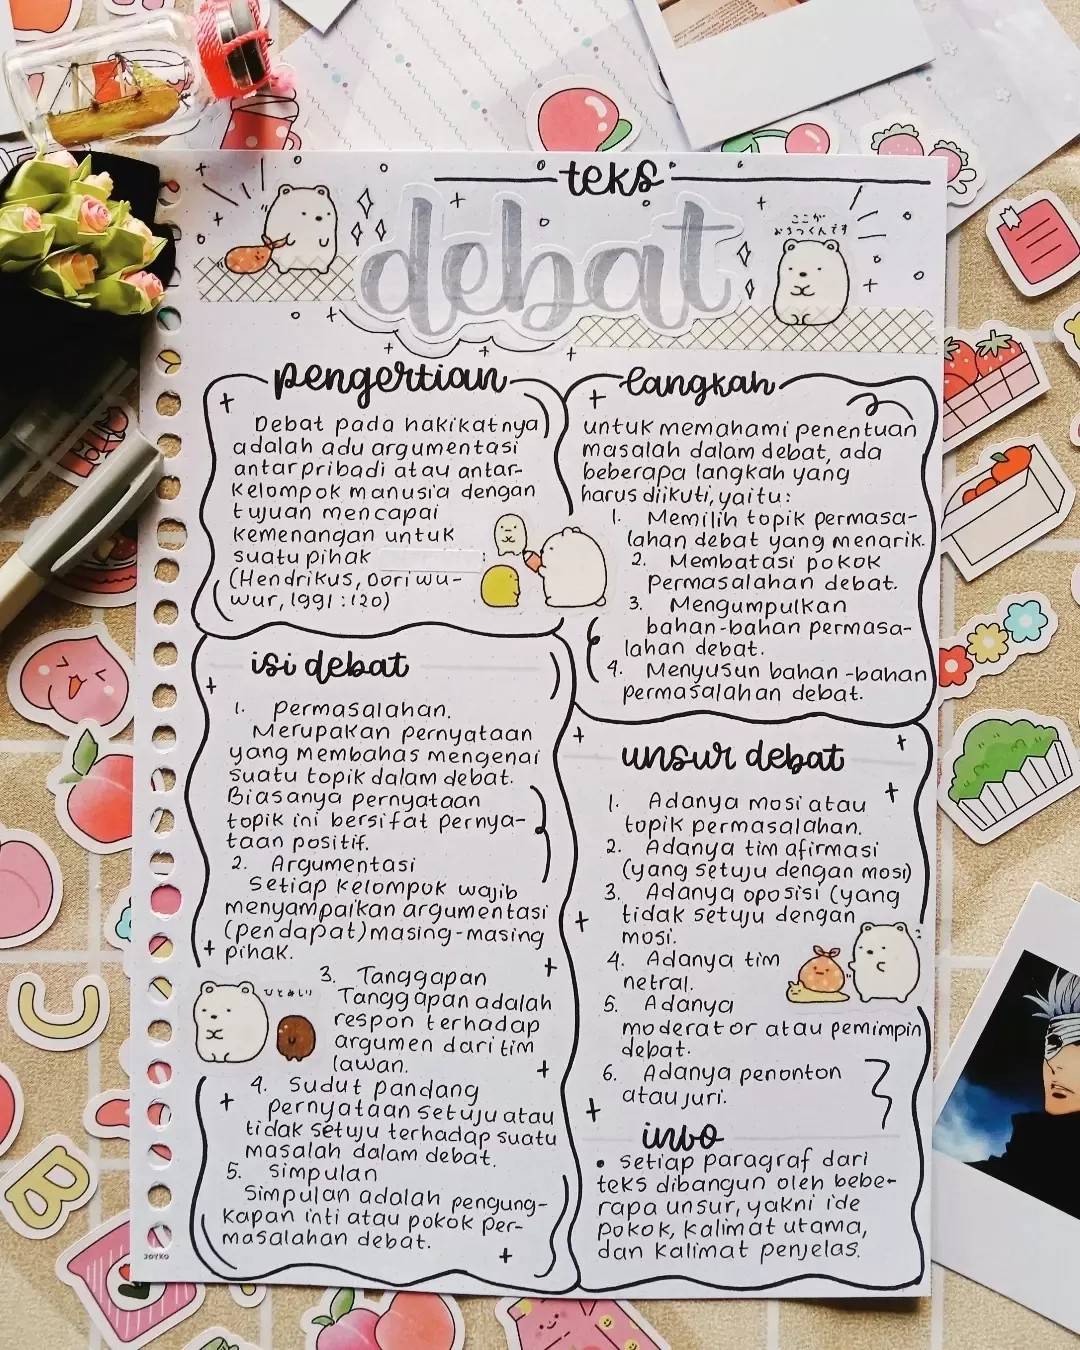 teks
debat
ここが
おちつくんです
pengertian
Debat pada hakikatnya
adalah adu argumentasi
antar pribadi atau antar-
kelompok manusia dengan
tujuan mencapai
kemenangan untuk
suatu pihak :
(Hendrikus, Doriwu-
wur, 1991 : 120)
isi debat
1. permasalahan.
Merupakan pernyataan
yang membahas mengenai
suatu topik dalam debat.
Biasanya pernyataan
topik ini bersifat pernya-
taan positif.
2. Argumentasi
Setiap kelompok wajib
menyampaikan argumentasi
(pendapat) masing-masing
pihak.
3. Tanggapan
Tanggapan adalah
respon terhadap
argumen dari tim
lawan.
4. Sudut pandang
pernyataan setuju atau
tidak setuju terhadap suatu
masalah dalam debat.
5. Simpulan
Simpulan adalah pengung-
kapan inti atau pokok per-
masalahan debat.
JOYKO
langkah
untuk memahami penentuan
masalah dalam debat, ada
beberapa langkah yang
harus diikuti, yaitu:
1. Memilih topik permasa-
lahan debat yang menarik.
2. Membatasi pokok
permasalahan debat.
3. Mengumpulkan
bahan-bahan permasa-
lahan debat.
4. Menyusun bahan-bahan
permasalahan debat.
unsur debat
1. Adanya mosi atau
topik permasalahan.
2. Adanya tim afirmasi
(yang setuju dengan mosi)
3. Adanya oposisi (yang
tidak setuju dengan
mosi.
4. Adanya tim
netral.
5. Adanya
moderator atau pemimpin
debat.
6. Adanya penonton
atau juri.
info
• setiap paragraf dari
teks dibangun oleh bebe-
rapa unsur, yakni ide
pokok, kalimat utama,
dan kalimat penjelas.